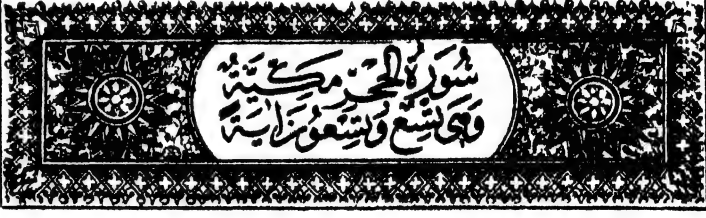 سُورَةُ الحِجْرِ مَكِّيَّةٌ
وَهِيَ تِسْعٌ وَتِسْعُونَ آيَةً